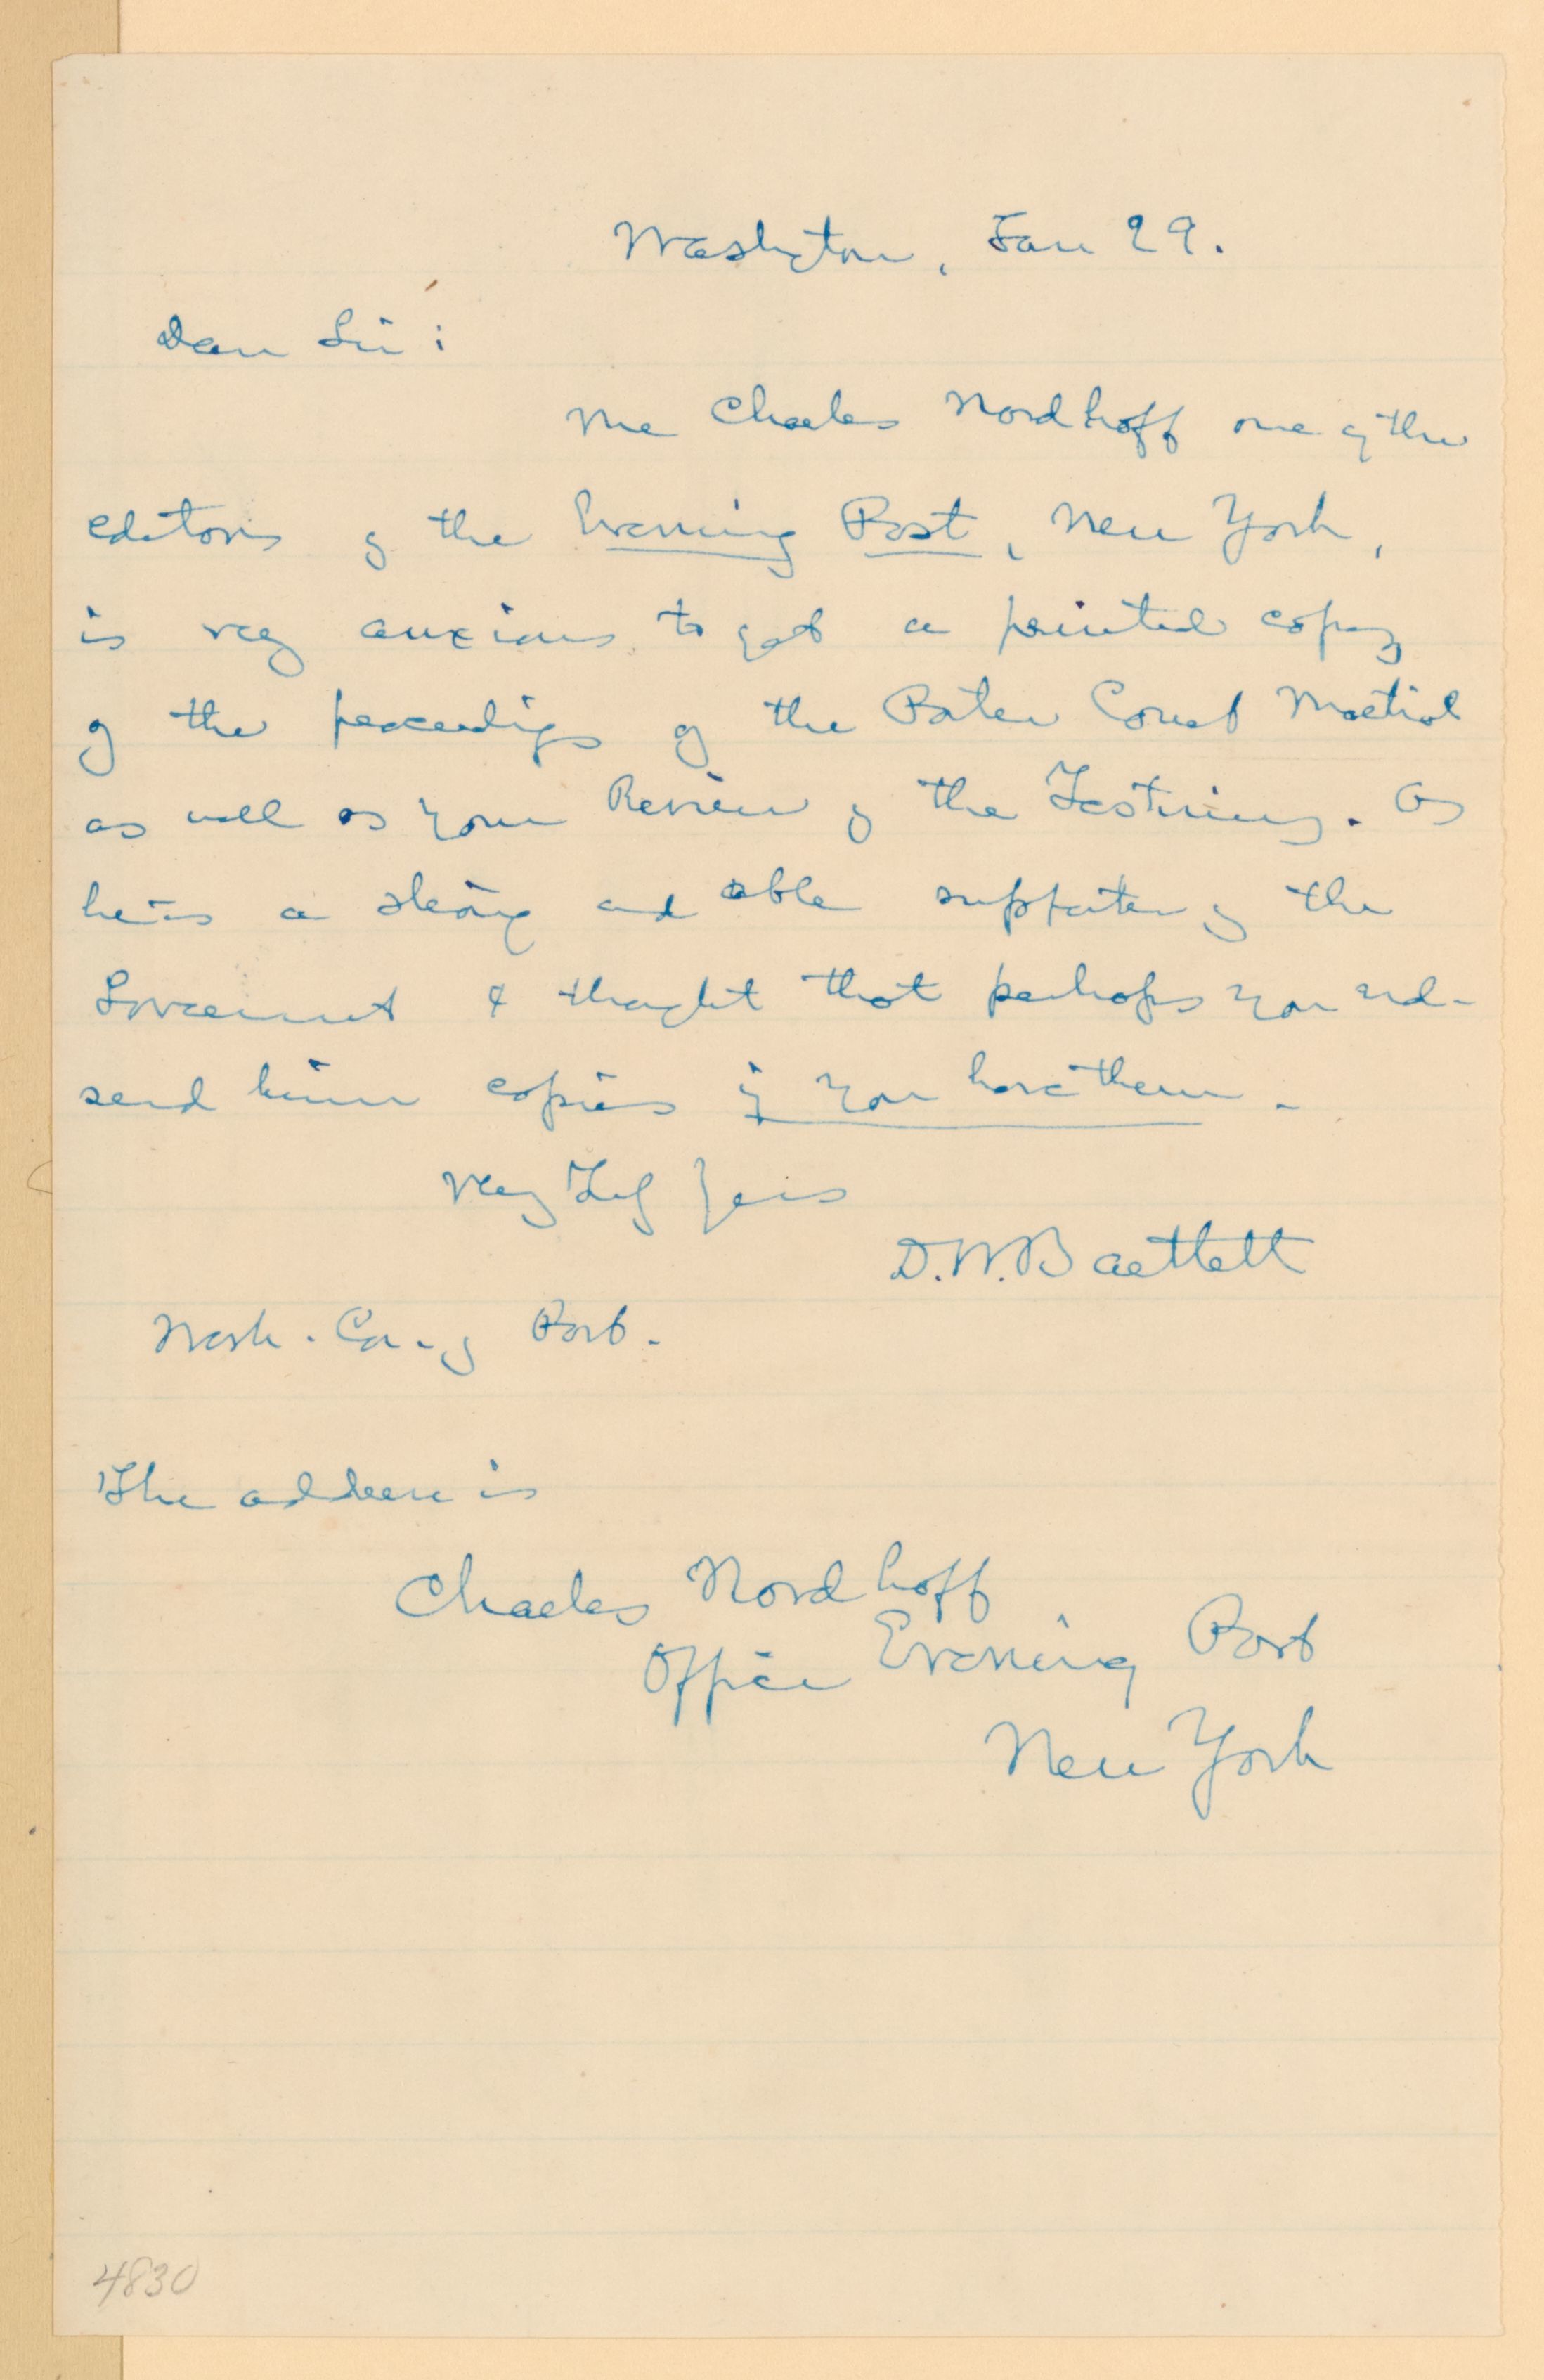 Washington, Jan 29.
Dear Sir:
Mr Charles Nordhoff one of the
editors of the Evening Post, New York,
is very anxious to get a printed copy
of the proceedings of the Porter Court Martial
as well as your Review of the Testimony. As
he is a strong and able supporter of the
Government I thought that perhaps you wd-
send him copies if you have them.
Very Truly Yours
D.W. Bartlett
Wash. Cor. of Post.
The address is
Charles Nordhoff
Office Evening Post
New York
4830